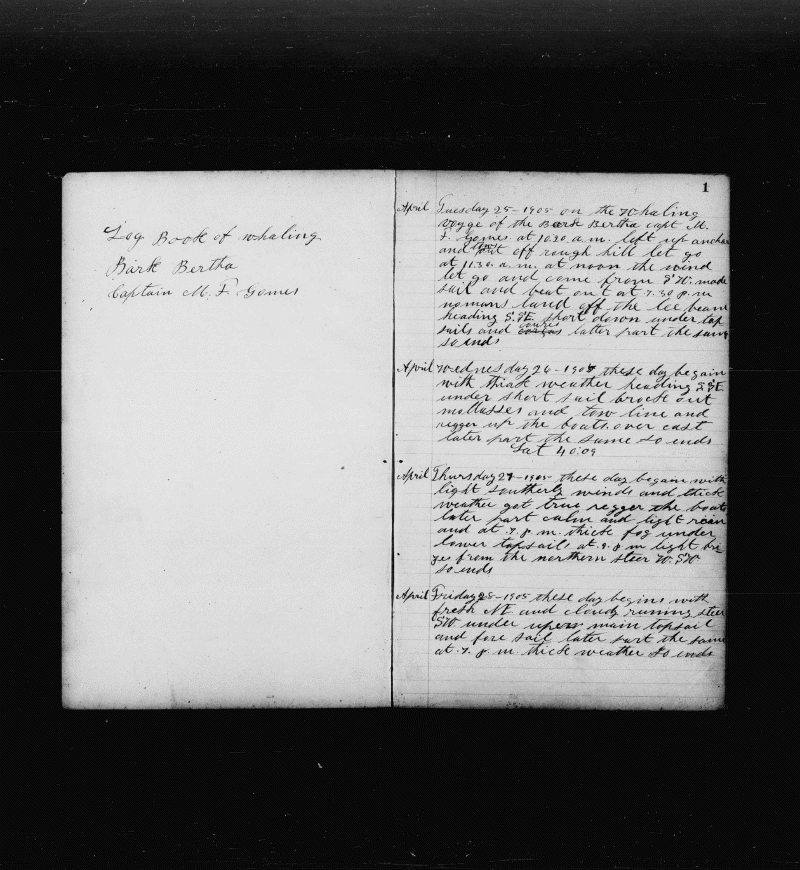 Log Book of whaling
Bark Bertha
Captain M. F Gomes
1
April Tuesday 25 - 1905 on the Whaling
voyge of the Bark Bertha capt M.
F. Gomes. at 10.20. a.m. left up anchor
and off rough hill let go
at 11.30. a.m. at noon the wind
let go and come from S.W. made
sail and beat out at 7.30 p.m
nomans land off the lee beam
heading S.SE. short down under top
sails and latter part the same
so ends
April Wednesday 26 - 1905 these day begain
with thick weather heading S.SE
under short sail brock out
mollasses and tow line and
regger up the boats. over cast
later part the same so ends
Lat 40:09
April Thursday 27 - 1905 these day begain with
light southerly winds and thick
weather got true regger the boats
later part calm and light rean
and at 7. p. m. thick fog under
lower topsails at 9. p m light bre
zes from the northern steer W. SW
so ends
April Friday 28 - 1905 these day begins with
fresh NE and cloudy runing steer
SW under uperr main topsail
and fore sail later part the same
at 7. p. m. thick weather so ends